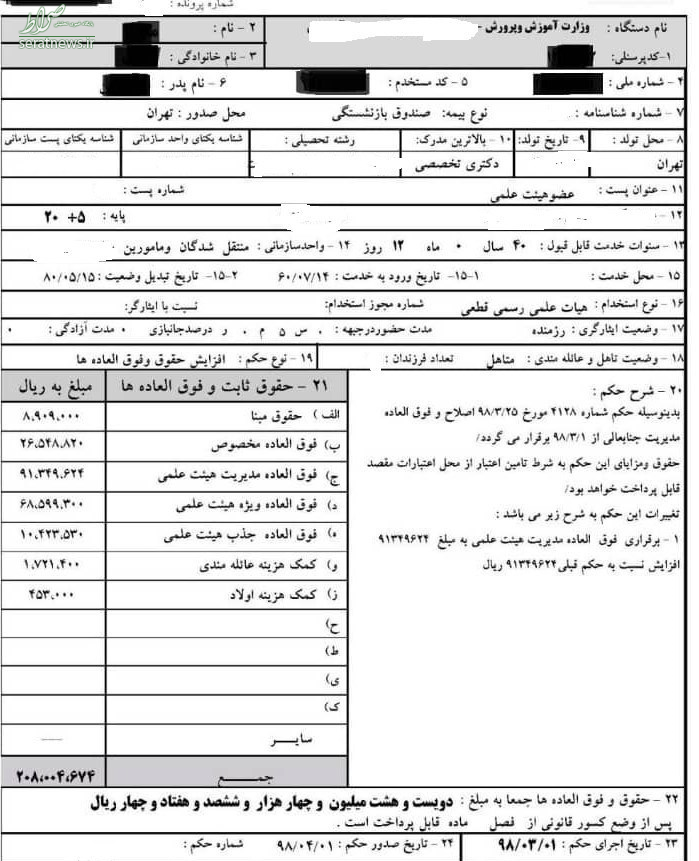 شماره پرونده :
صراط
seratnews.ir
نام دستگاه : وزارت آموزش وپرورش -
۲ - نام :
۱-کدپرسنلی:
۳ - نام خانوادگی :
۴ - شماره ملی :
۵ - کد مستخدم :
۶ - نام پدر :
۷ - شماره شناسنامه :
نوع بیمه: صندوق بازنشستگی
محل صدور : تهران
۸ - محل تولد : ۹- تاریخ تولد: ۱۰ - بالاترین مدرک: رشته تحصیلی : شناسه یکتای واحد سازمانی شناسه یکتای پست سازمانی
تهران دکتری تخصصی
۱۱ - عنوان پست : عضوهیئت علمی شماره پست :
۱۲ - پایه : ۵+ ۲۰
۱۳ - سنوات خدمت قابل قبول : ۴۰ سال ۰ ماه ۱۲ روز ۱۴ - واحدسازمانی : منتقل شدگان ومامورین
۱۵ - محل خدمت : ۱-۱۵- تاریخ ورود به خدمت : ۶۰/۰۷/۱۴ ۲-۱۵- تاریخ تبدیل وضعیت : ۸۰/۰۵/۱۵
۱۶ - نوع استخدام : هیات علمی رسمی قطعی شماره مجوز استخدام: نسبت با ایثارگر:
۱۷ - وضعیت ایثارگری : رزمنده مدت حضوردرجبهه : . س ۵ م . ر درصدجانبازی ۰ مدت آزادگی : ۰
۱۸ - وضعیت تاهل و عائله مندی : متاهل تعداد فرزندان : ۱۹ - نوع حکم : افزایش حقوق وفوق العاده ها
۲۰ - شرح حکم :
بدینوسیله حکم شماره ۴۱۲۸ مورخ ۹۸/۳/۲۵ اصلاح و فوق العاده
مدیریت جنابعالی از ۹۸/۳/۱ برقرار می گردد/
حقوق ومزایای این حکم به شرط تامین اعتبار از محل اعتبارات مقصد
قابل پرداخت خواهد بود/
تغییرات این حکم به شرح زیر می باشد :
۱ - برقراری فوق العاده مدیریت هیئت علمی به مبلغ ۹۱۳۴۹۶۲۴
افزایش نسبت به حکم قبلی۹۱۳۴۹۶۲۴ ریال
۲۱ - حقوق ثابت و فوق العاده ها مبلغ به ریال
الف) حقوق مبنا ۸،۹۰۹،۰۰۰
ب) فوق العاده مخصوص ۲۶،۵۴۸،۸۲۰
ج) فوق العاده مدیریت هیئت علمی ۹۱،۳۴۹،۶۲۴
د) فوق العاده ویژه هیئت علمی ۶۸،۵۹۹،۳۰۰
ه) فوق العاده جذب هیئت علمی ۱۰،۴۲۳،۵۳۰
و) کمک هزینه عائله مندی ۱،۷۲۱،۴۰۰
ز) کمک هزینه اولاد ۴۵۳،۰۰۰
ح)
ط)
ی)
ک)
سایر ---
جمع ۲۰۸،۰۰۴،۶۷۴
۲۲ - حقوق و فوق العاده ها جمعا به مبلغ : دویست و هشت میلیون و چهار هزار و ششصد و هفتاد و چهار ریال
پس از وضع کسور قانونی از فصل ماده قابل پرداخت است .
۲۳ - تاریخ اجرای حکم : ۹۸/۰۳/۰۱ ۲۴ - تاریخ صدور حکم : ۹۸/۰۴/۰۱ شماره حکم :